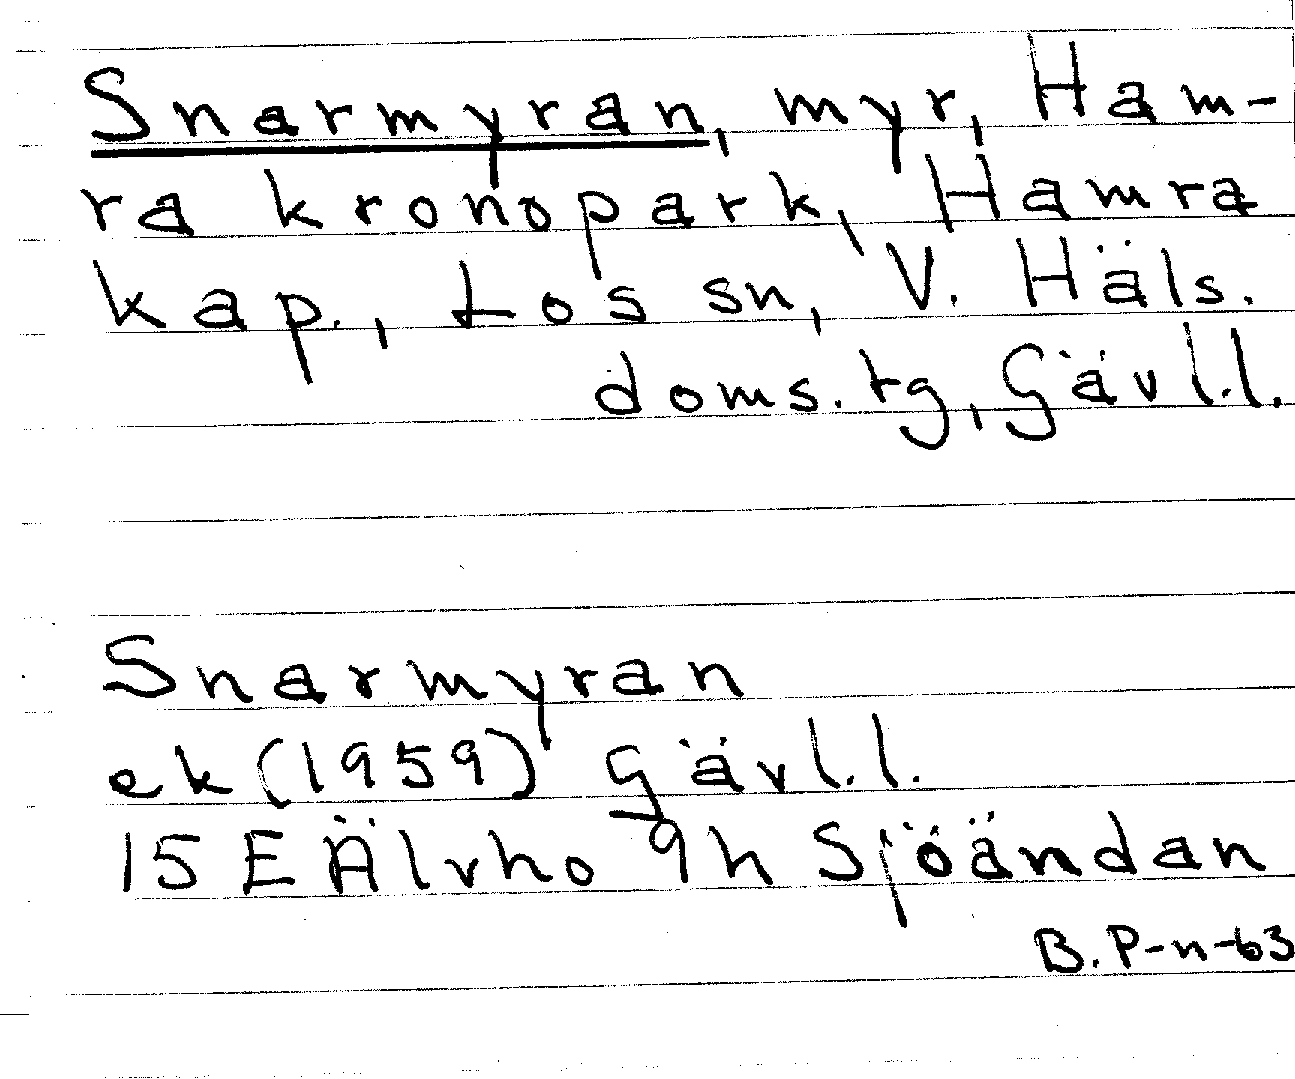 Snarmyran, myr, Ham-
ra kronopark, Hamra
kap., Los sn, V. Häls.
doms. tg, Gävl.l.
Snarmyran
ek (1959) Gävl.l.
15 E Älvho 9h Sjöändan
B. P-n-63